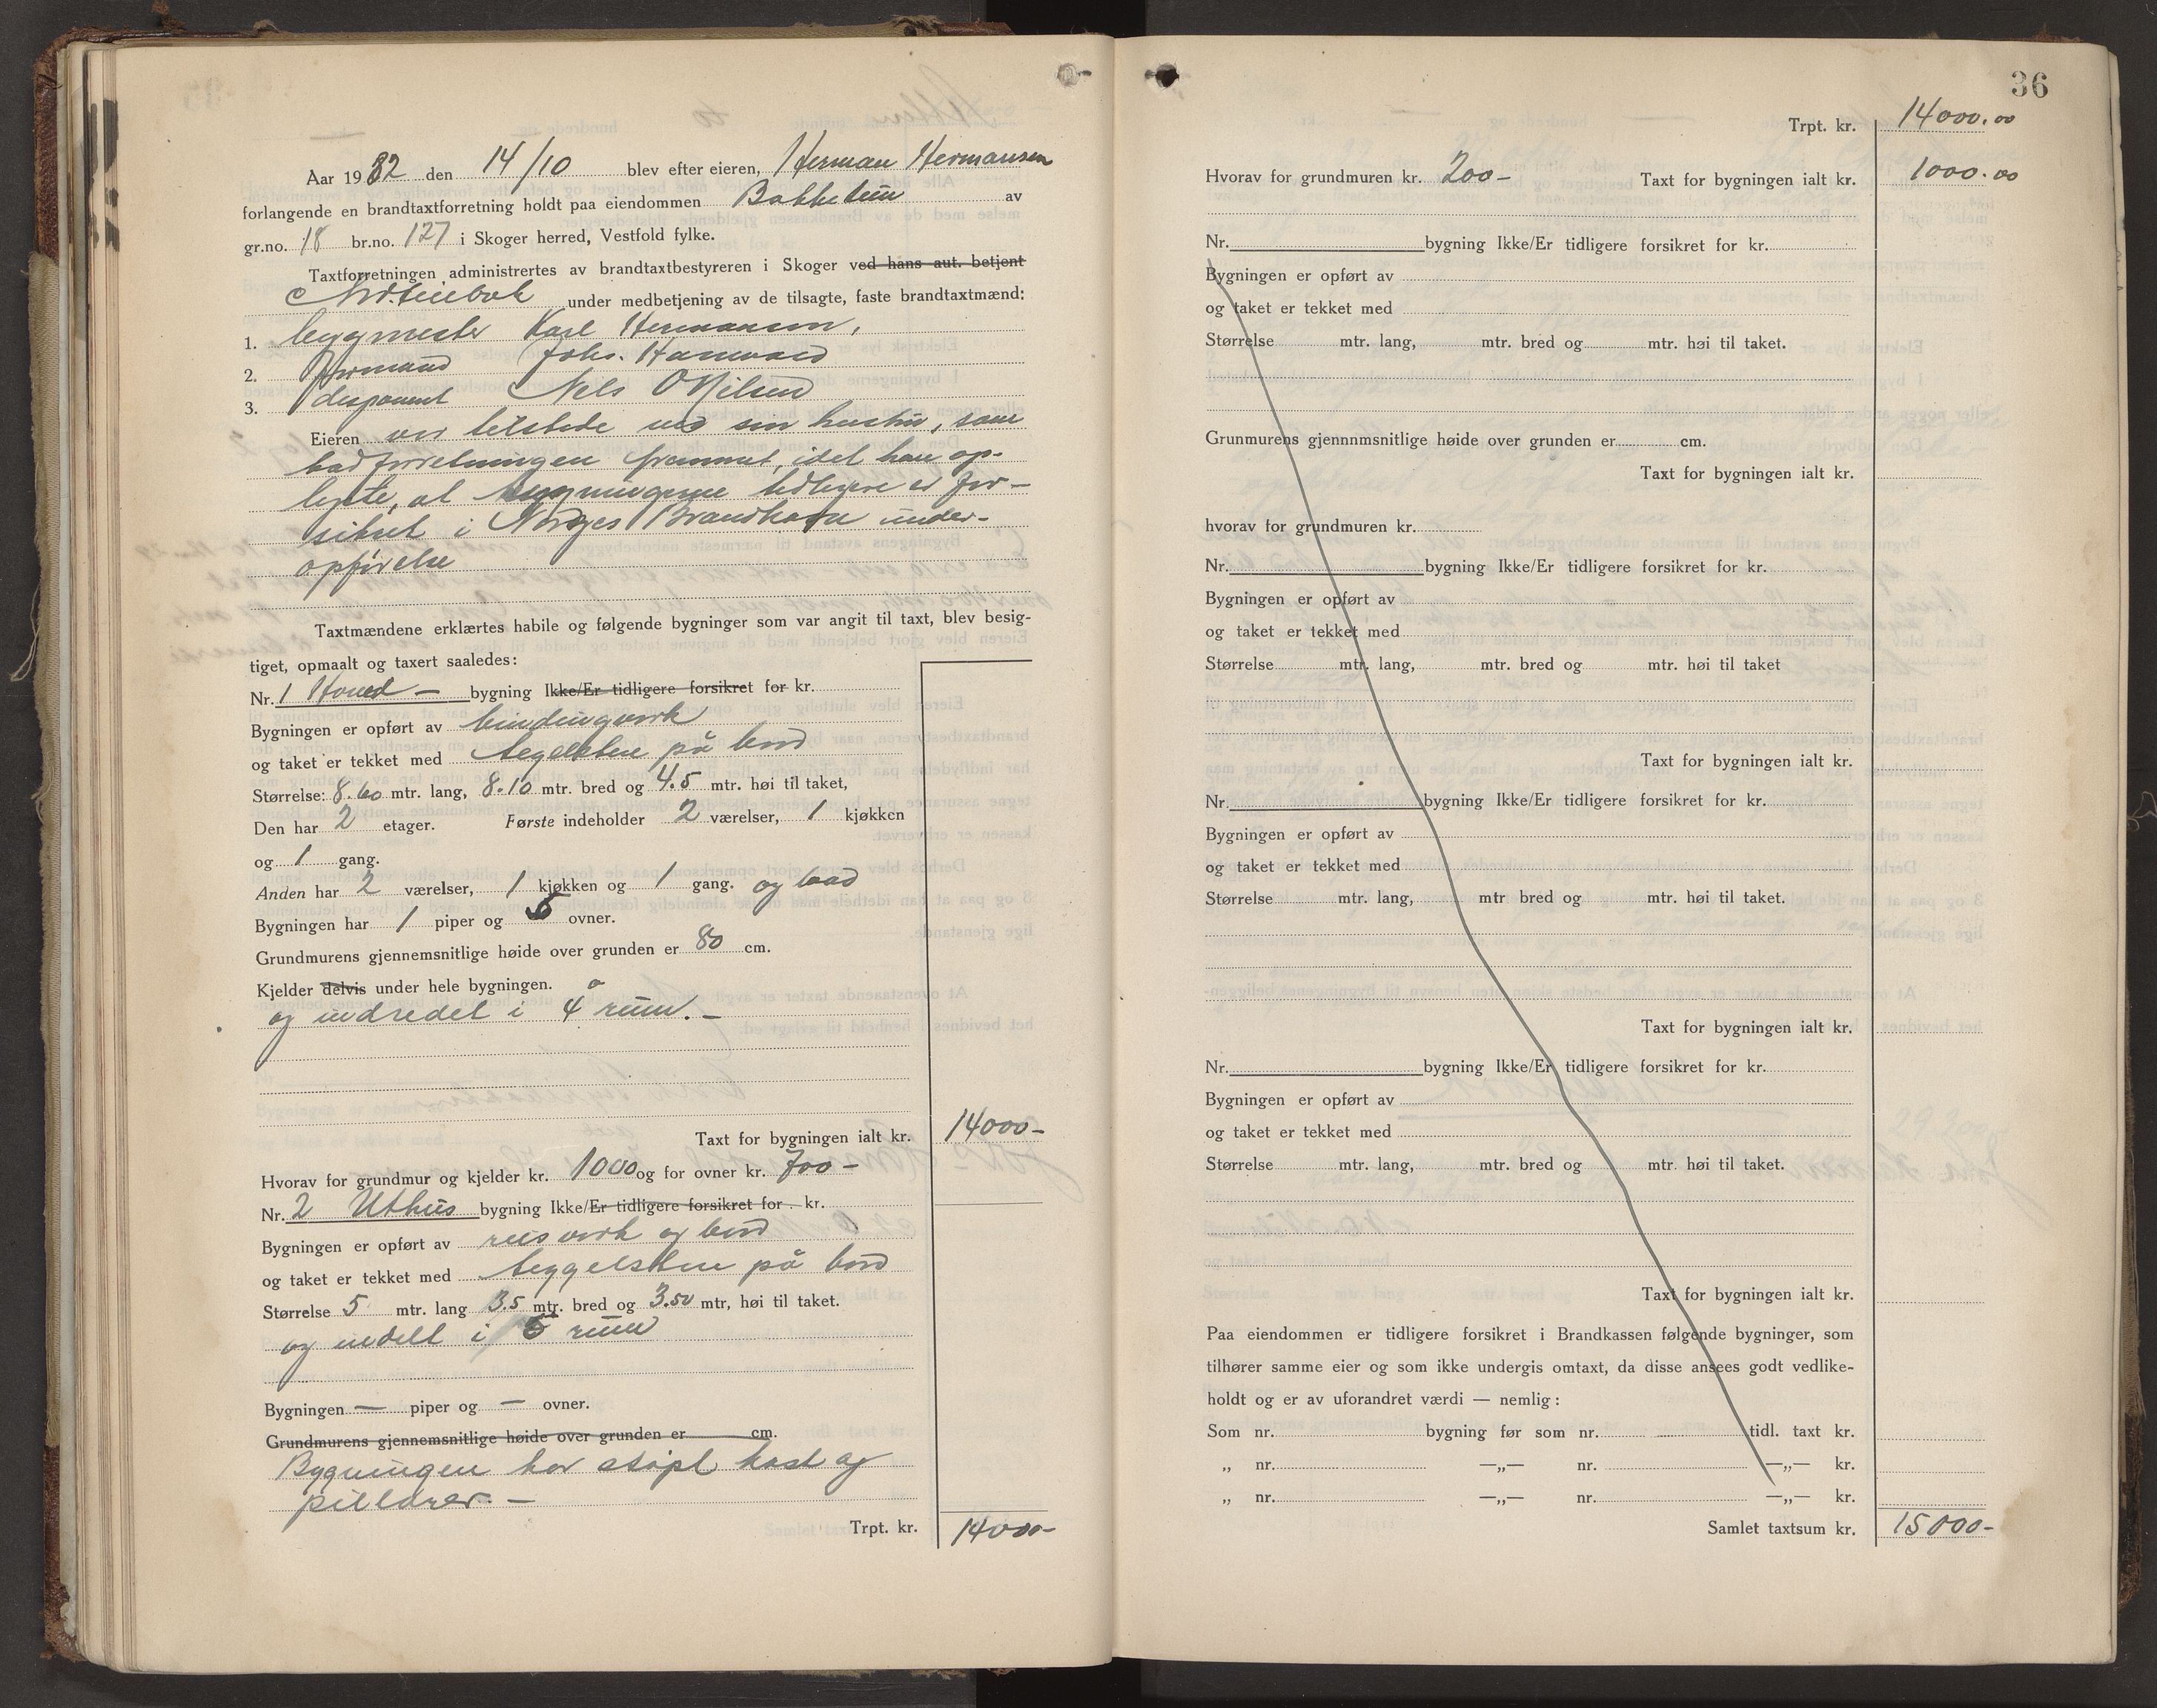 Aar 1932 den 14/10 blev efter eieren, Herman Hermansen
forlangende en brandtaxtforretning holdt paa eiendommen Bakketun av
gr.no. 18 br.no. 127 i Skoger herred, Vestfold fylke.
Taxtforretningen administrertes av brandtaxtbestyreren i Skoger ved hans aut. betjent
under medbetjening av de tilsagte, faste brandtaxtmænd:
1. byggmester Karl Hermansen,
2. formand Johs. Hanevold
3. disponent Nils O Nilsen
Eieren var tilstede ved sin hustru, som
bad forretningen fremmet, idet hun op-
lyste, at bygningene tidligere er for-
sikret i Norges Brandkasse under-
opførelse
Taxtmændene erklærtes habile og følgende bygninger som var angit til taxt, blev besig-
tiget, opmaalt og taxert saaledes:
Nr. 1 Hoved - bygning Ikke/Er tidligere forsikret for kr.
Bygningen er opført av bindingverk
og taket er tekket med teglsten på bord
Størrelse: 8.60 mtr. lang, 8.10 mtr. bred og 4.5 mtr. høi til taket,
Den har 2 etager. Første indeholder 2 værelser, 1 kjøkken
og 1 gang.
Anden har 2 værelser, 1 kjøkken og 1 gang. og bad
Bygningen har 1 piper og 5 ovner.
Grundmurens gjennemsnitlige høide over grunden er 80 cm.
Kjelder delvis under hele bygningen.
og indredet i 4 rum. -
Taxt for bygningen ialt kr. 14000-
Hvorav for grundmur og kjelder kr. 1000 og for ovner kr. 700-
Nr. 2 Uthus bygning Ikke/Er tidligere forsikret for kr.
Bygningen er opført av reisverk og bord
og taket er tekket med teggelsten på bord
Størrelse 5 mtr. lang 3.5 mtr. bred og 3.50 mtr, høi til taket.
og indelt i 5 rum
Bygningen — piper og — ovner.
Grundmurens gjennemsnitlige høide over grunden er cm.
Bygningen har støpt kast og
pillarer. -
Trpt. kr. 14000-
36
Trpt. kr. 14000.00
Hvorav for grundmuren kr. 200- Taxt for bygningen ialt kr. 1000.00
Nr. bygning Ikke/Er tidligere forsikret for kr.
Bygningen er opført av
og taket er tekket med
Størrelse mtr. lang, mtr. bred og mtr. høi til taket.
Grunmurens gjennnmsnitlige høide over grunden er cm.
Taxt for bygningen ialt kr.
hvorav for grundmuren kr.
Nr. bygning Ikke/Er tidligere forsikret for kr.
Bygningen er opført av
og taket er tekket med
Størrelse mtr. lang, mtr. bred og mtr. høi til taket
Taxt for bygningen ialt kr.
Nr. bygning Ikke/Er tidligere forsikret for kr.
Bygningen er opført av
og taket er tekket med
Størrelse mtr. lang, mtr bred og mtr. høi til taket.
Taxt for bygningen ialt kr.
Nr. bygning Ikke/Er tidligere forsikret for kr.
Bygningen er opført av
og taket er tekket med
Størrelse mtr. lang, mtr. bred og mtr. høi til taket.
Taxt for bygningen ialt kr.
Paa eiendommen er tidligere forsikret i Brandkassen følgende bygninger, som
tilhører samme eier og som ikke undergis omtaxt, da disse ansees godt vedlike-
holdt og er av uforandret værdi — nemlig:
Som nr. bygning før som nr. tidl. taxt kr.
„ nr. —„— nr. —„— kr.
„ nr. —„— nr. —„— kr.
Samlet taxtsum kr. 15000-